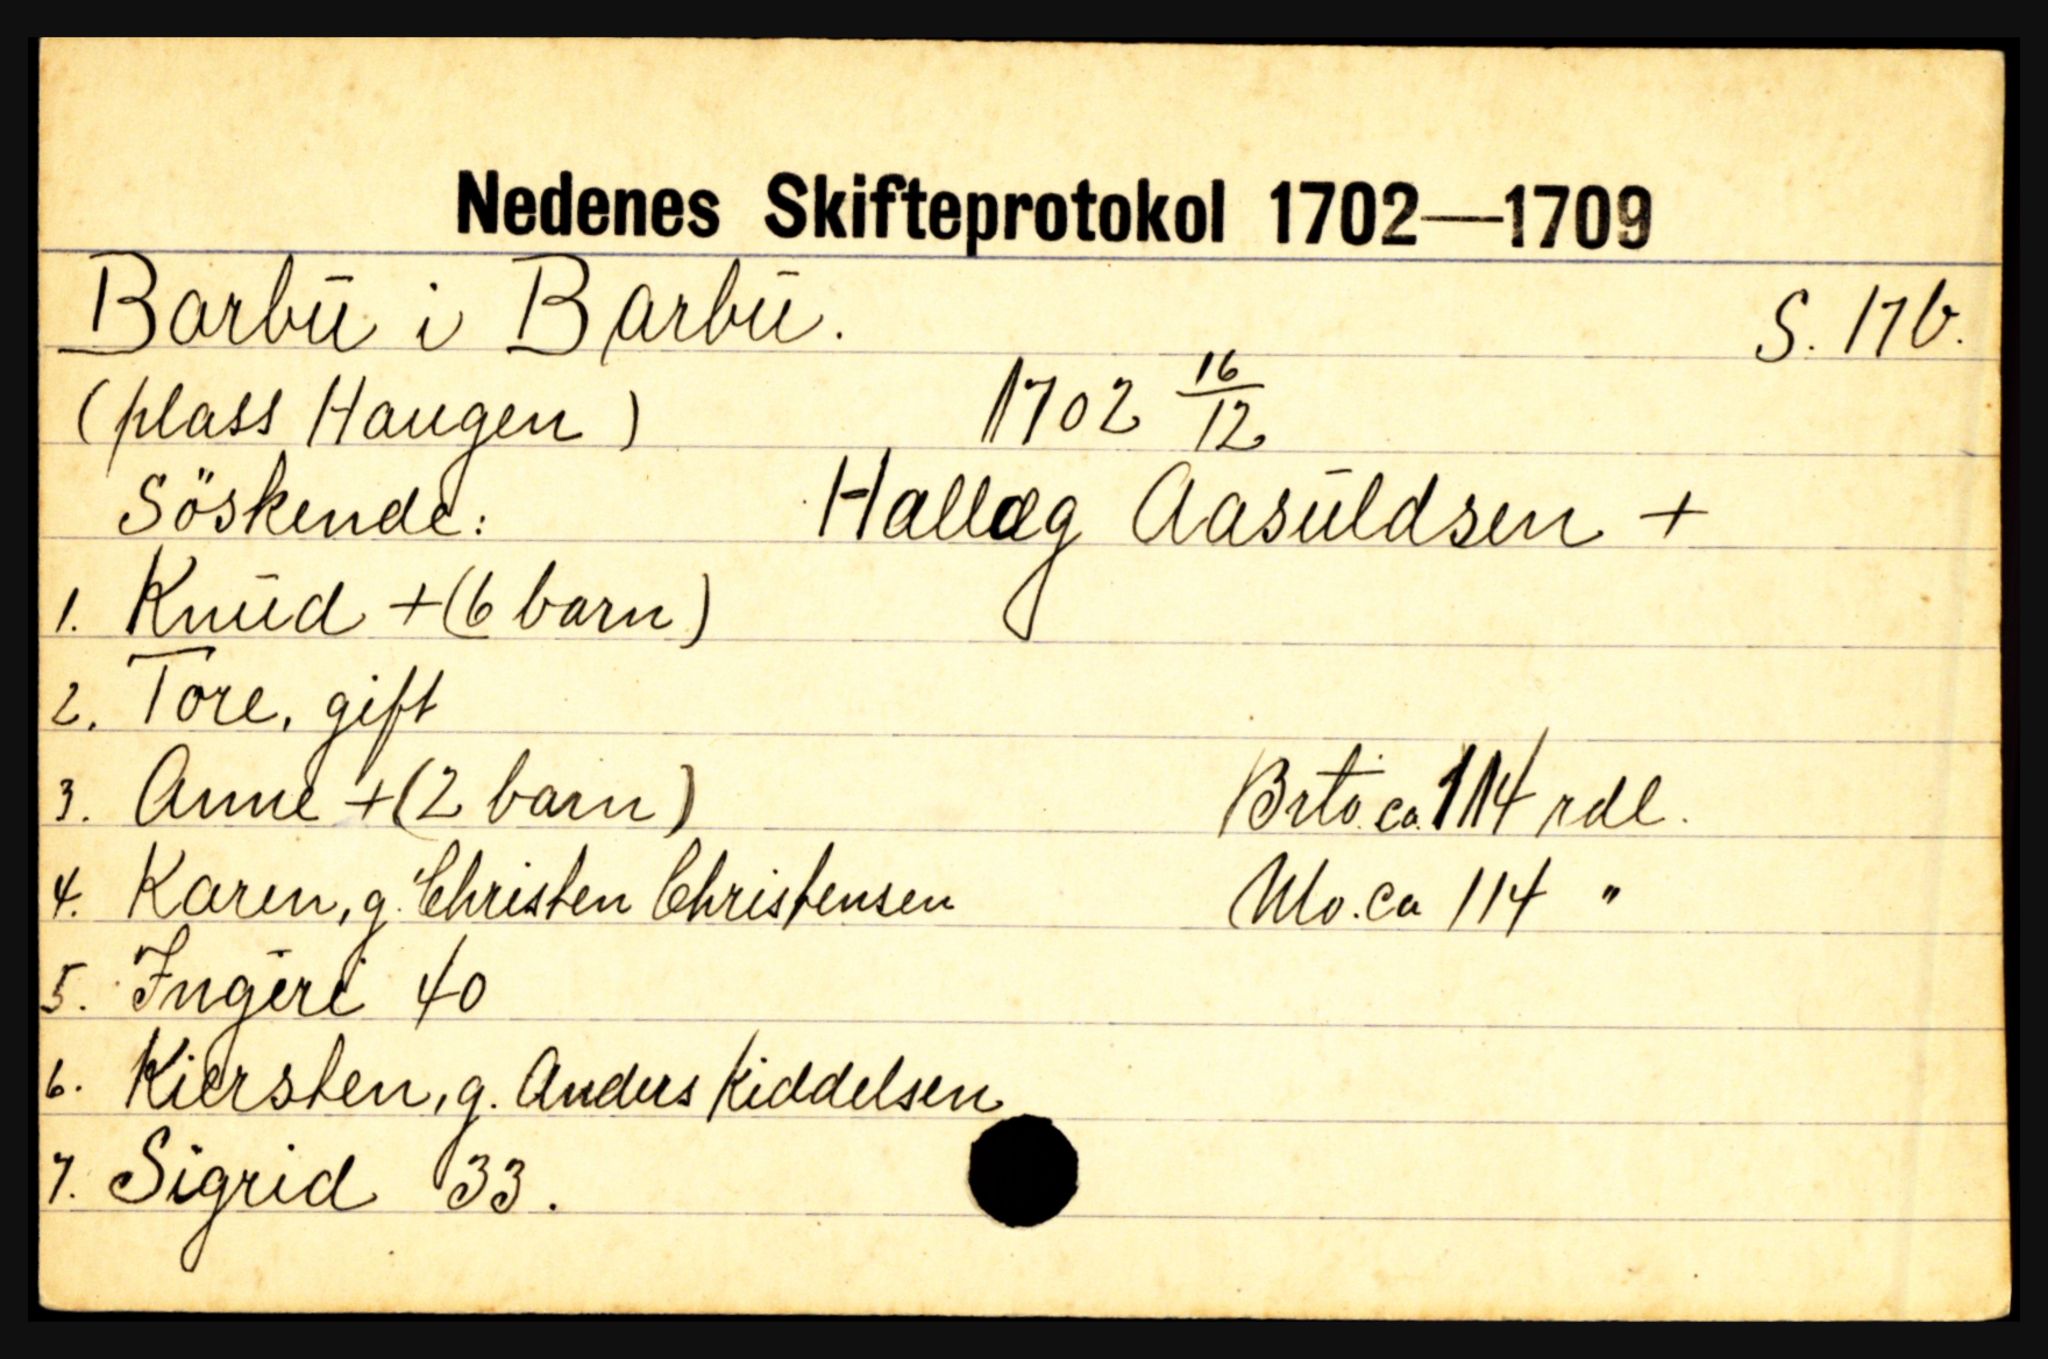 Nedenes Skifteprotokol 1702—1709
Barbū i Barbū. S. 17b.
(plass Haugen) 1702 16/12
Söskende: Hallæg Aasūldsen +
1. Knūd + (6 barn)
2. Tore, gift
3. Anne + (2 barn) Brto. ca. 114 rdl.
4. Karen, g. Christen Christensen Nto. ca 114 "
5. Ingeri 40
6. Kiersten, g. Anders Kiddelsen
7. Sigrid 33.